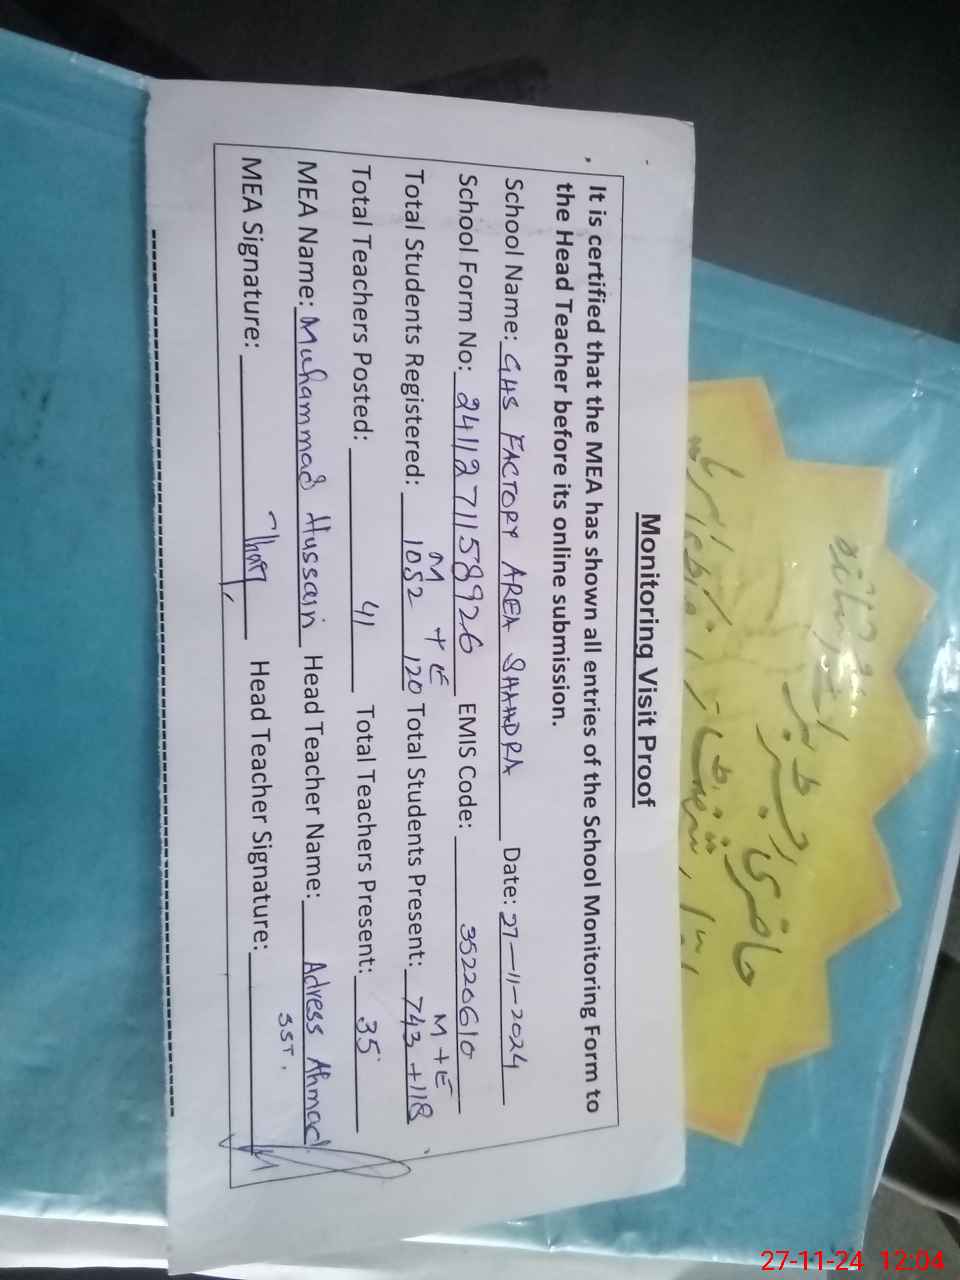 Monitoring Visit Proof
It is certified that the MEA has shown all entries of the School Monitoring Form to
the Head Teacher before its online submission.
School Name: GHS FACTORY AREA SHAHDRA Date: 27-11-2024
School Form No: 2411271158926 EMIS Code: 35220610
M + E M + E
Total Students Registered: 1052 120 Total Students Present: 743 + 118
Total Teachers Posted: 41 Total Teachers Present: 35
MEA Name: Muhammad Hussain Head Teacher Name: Adress Ahmad
SST.
MEA Signature: Head Teacher Signature:
حاضری
27-11-24 12:04